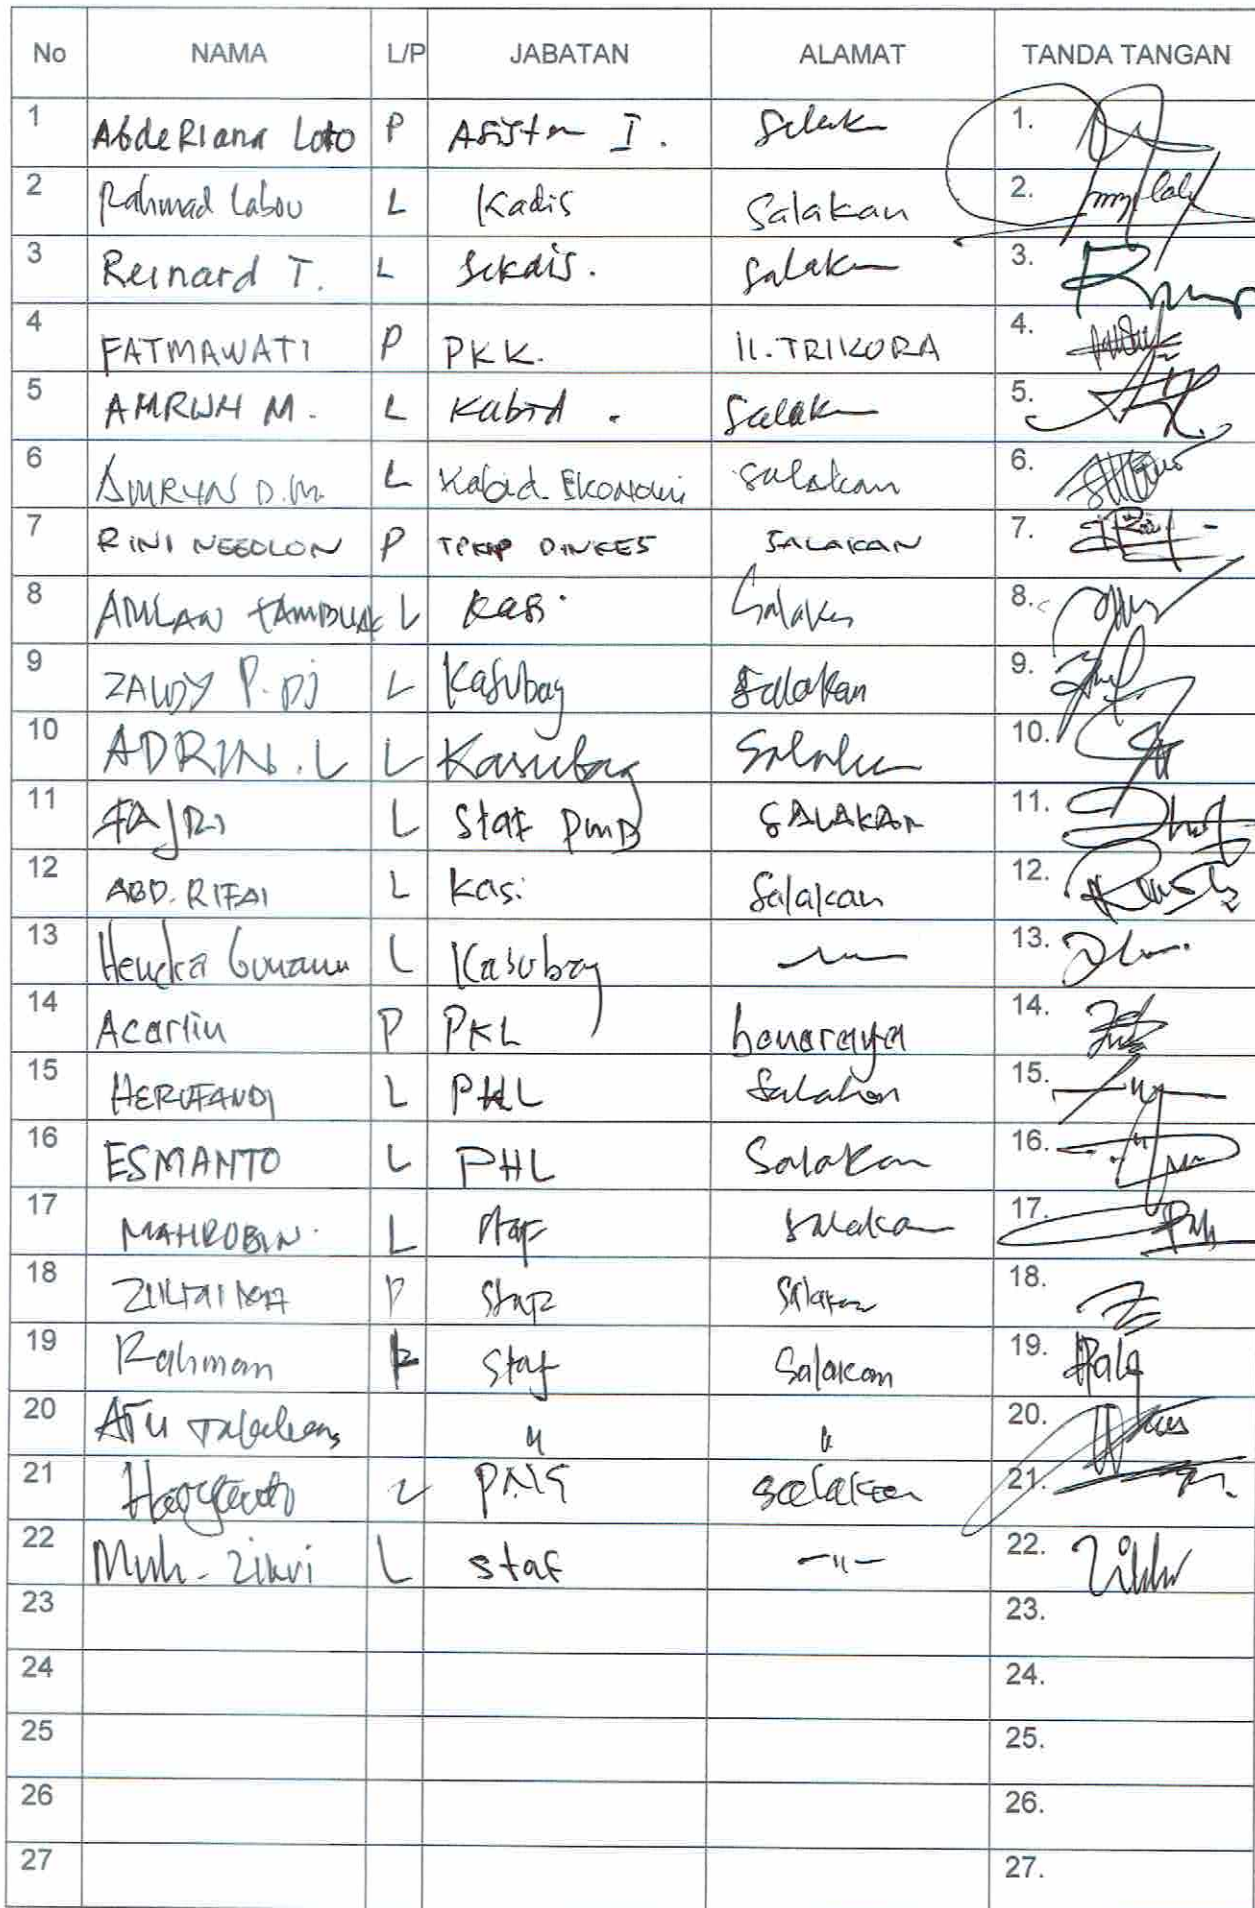 No NAMA L/P JABATAN ALAMAT TANDA TANGAN
1 AbdeRiana Loto P Asisten I. 1.
2 Rahmad Labou L Kadis Salakan 2.
3 Reinard T. L Sekdis. Salakan 3.
4 FATMAWATI P PKK. Jl. TRIKORA 4.
5 AMRUH M. L Kabid. Salakan 5.
6 AMRYN D.M. L Kabid. Ekonomi Salakan 6.
7 RINI NEEOLON P DINKES SALAKAN 7.
8 AMLAN L Kasi. Salakan 8.
9 P. DJ L Kasubag Salakan 9.
10 ADRIN. L L Kasubag Salakan 10.
11 FAJRI L Staf PMD SALAKAN 11.
12 ABD. RIFAI L Kasi Salakan 12.
13 Hendra Gunawan L Kasubag 13.
14 P PKL 14.
15 L PHL Salakan 15.
16 ESMANTO L PHL Salakan 16.
17 MAHROBIN. L Staf Salakan 17.
18 P Staf Salakan 18.
19 Rahman Staf Salakan 19.
20 " " 20.
21 L PNS Salakan 21.
22 Muh. Zikri L staf -"- 22.
23 23.
24 24.
25 25.
26 26.
27 27.